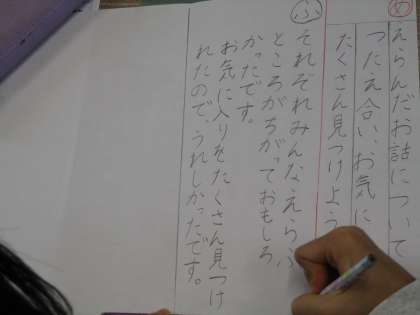 め
えらんだお話について
つたえ合い、お気に
たくさん見つけよう
ふ
それぞれみんなえらぶ
ところがちがっておもしろ
かったです。
お気に入りをたくさん見つけ
れたので、うれしかったです。